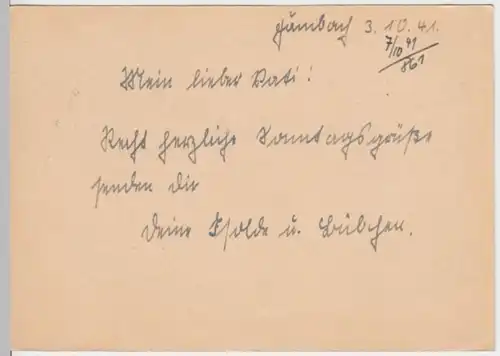 Hambach 3. 10. 41.
7/10 41
861
Mein lieber Vati!
Recht herzliche Sonntagsgrüße
senden dir
deine Isolde u. Bübchen.